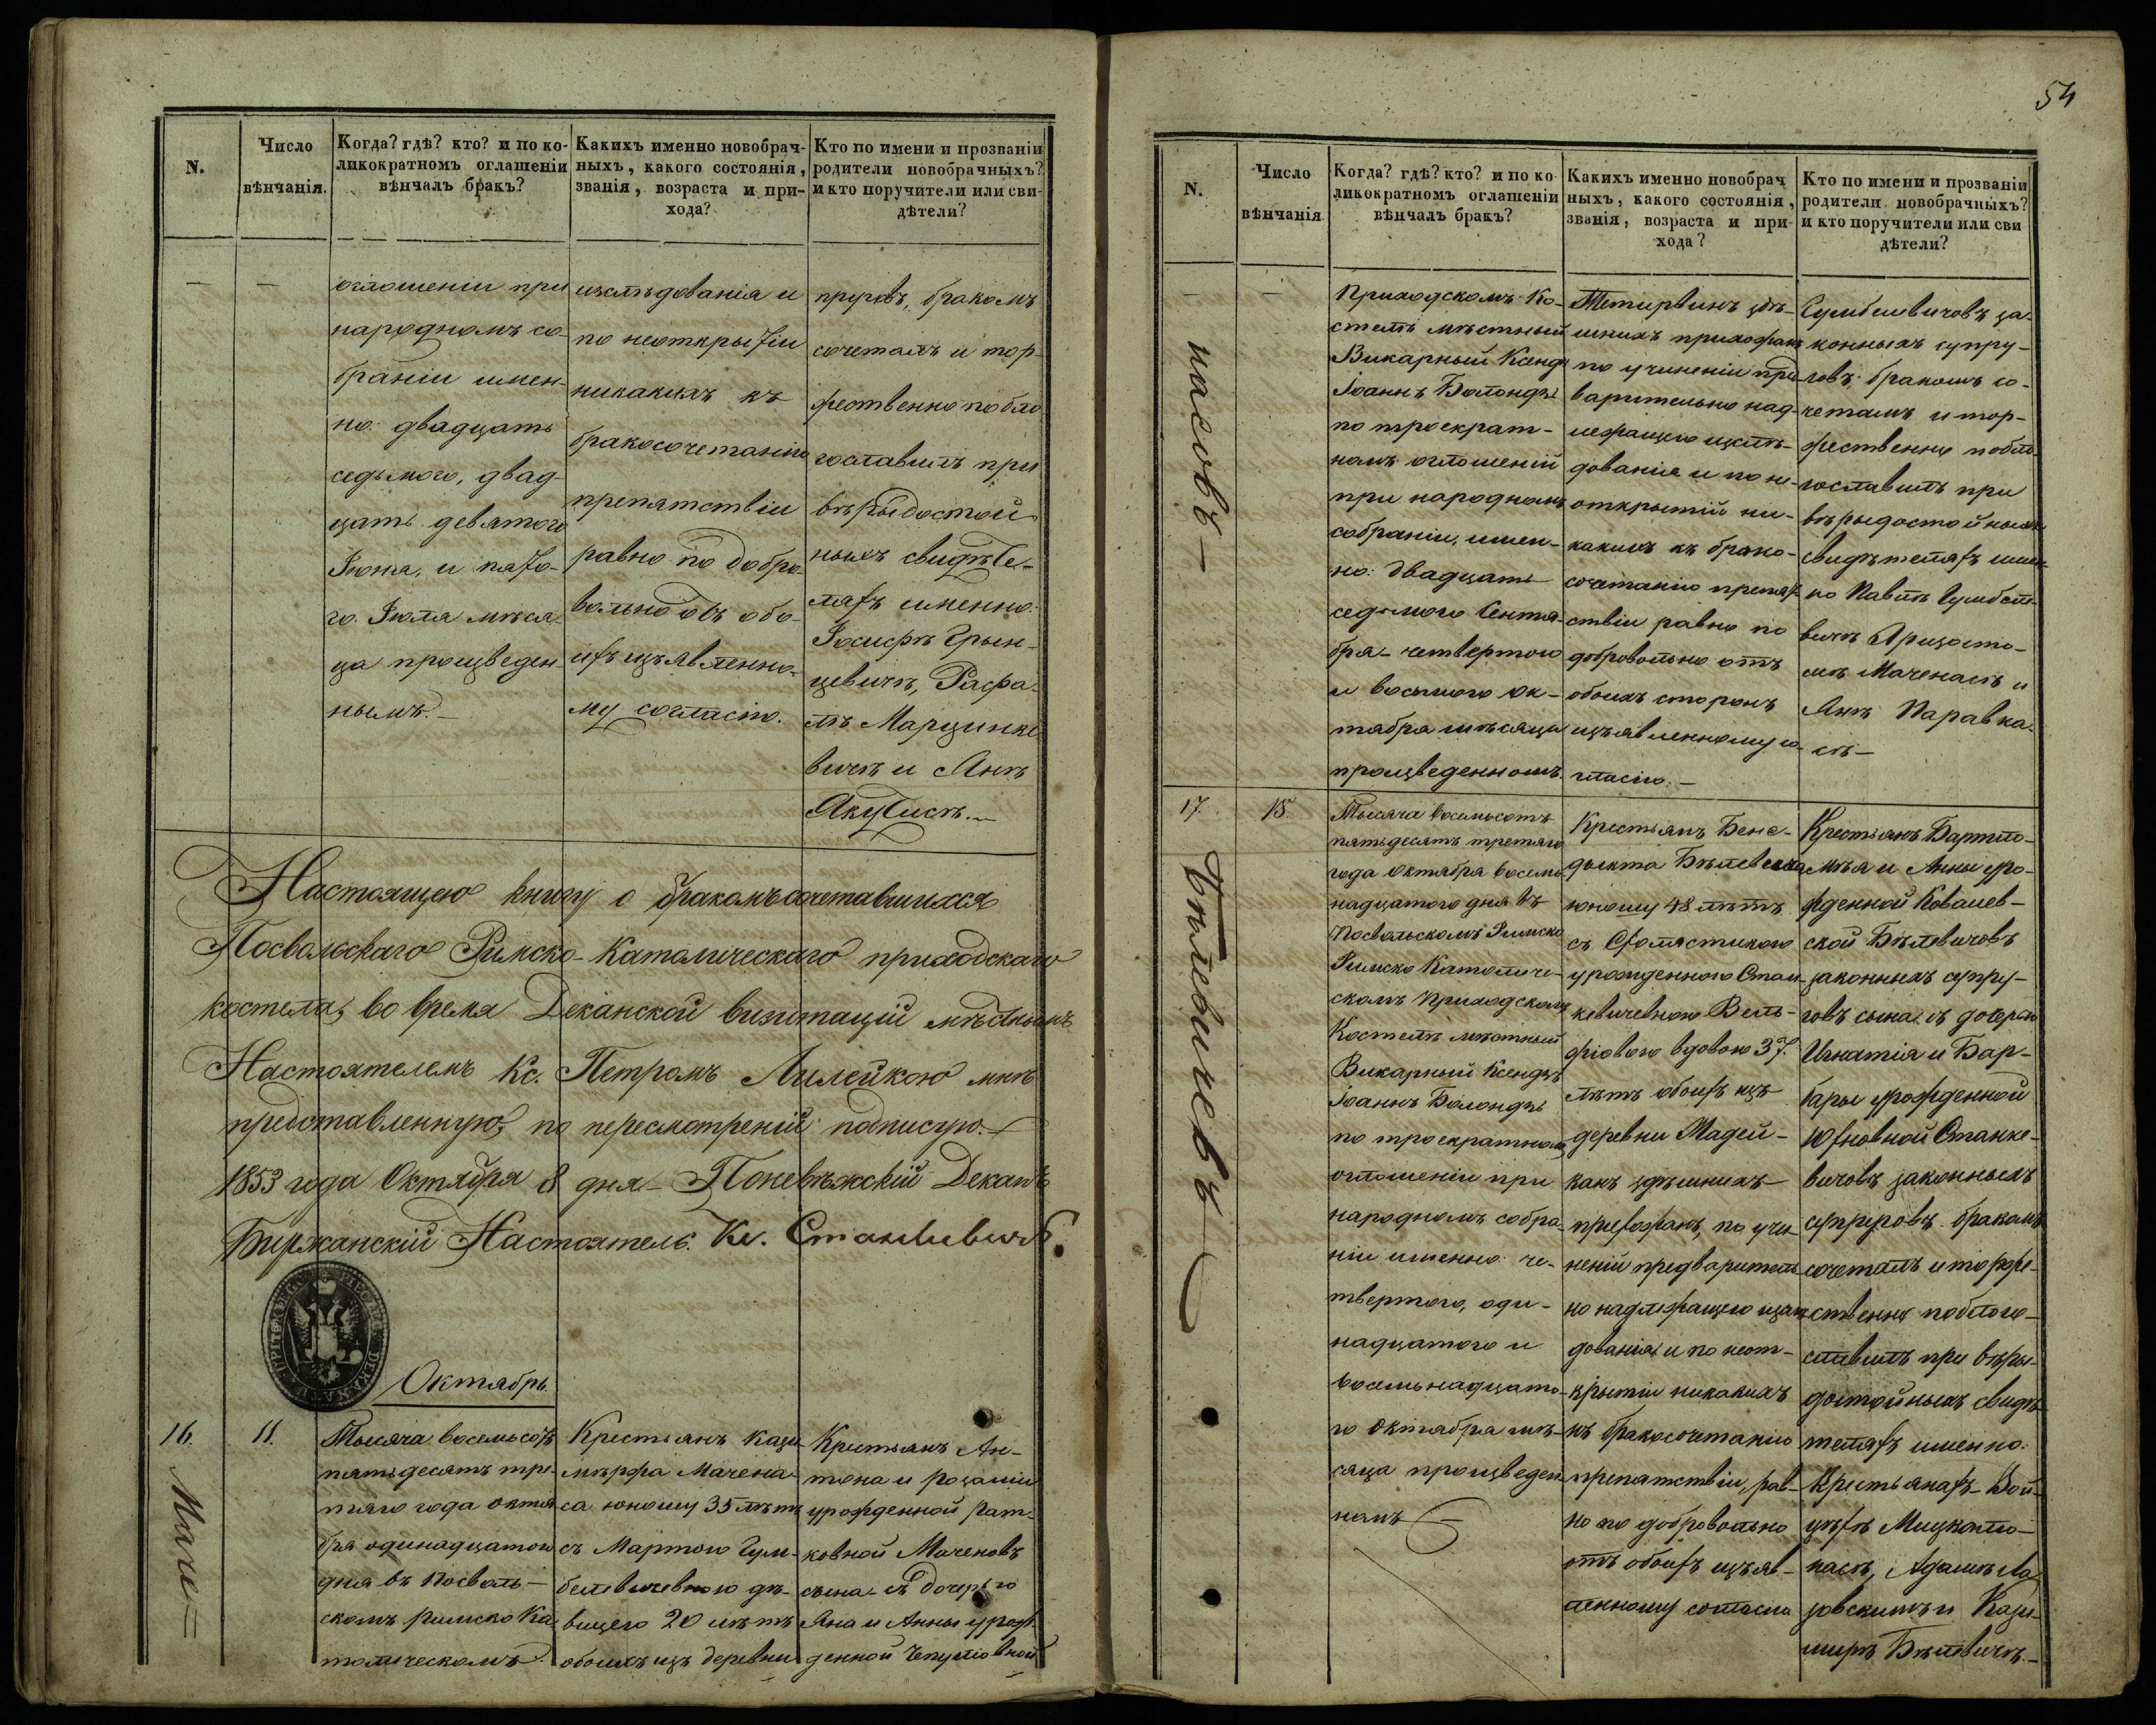 N.
Число
вѣнчанія.
Когда? гдѣ? кто? и по ко-
ликократномъ оглашеніи
вѣнчалъ бракъ?
Какихъ именно новобрач-
ныхъ, какого состоянія,
званія, возраста и при-
хода?
Кто по имени и прозваніи
родители новобрачныхъ?
и кто поручители или сви-
дѣтели?
— —
оглошеніи при
народномъ со-
браніи имен-
но: двадцать
седьмого, двад-
цать девятого
Іюня, и пято-
го Іюля мѣся-
ца произведен-
нымъ.—
изслѣдованія и
по неоткрытіи
никакихъ къ
бракосочетанію
препятствіи
равно по добро-
вольно отъ обо-
ихъ изъявленно-
му согласію.
пруговъ, бракомъ
сочеталъ и тор-
жественно побло-
гославилъ при
вѣрыдостой-
ныхъ свидѣте-
ляхъ именно:
Іосифѣ Грын-
цевичѣ, Рафа-
лѣ Марцинке-
вичѣ и Янѣ
Якутисѣ.—
Настоящею книгу о бракомъ сочетавшихся
Посвольскаго Римско-Католическаго приходскаго
костела, во время Деканской визитаціи мѣстнымъ
Настоятелемъ Кс. Петромъ Лилейкою мнѣ
представленную, по пересмотреніи подписую.—
1853 года Октября 8 дня— Поневѣжскій Деканъ
Биржанскій Настоятель. Кс. Станкевичъ.
Октябрь.
16.
11.
Маче=
Тысяча восемьсотъ
пятьдесятъ тре-
тяго года Октя-
бря одинадцатого
дня въ Посволь-
скомъ Римско Ка-
толическомъ
Крестьянъ Кази-
мѣржа Мачена-
са юношу 35 лѣтъ
съ Мартою Гум-
белевичевною дѣ-
вицею 20 лѣтъ
обоихъ изъ деревни
Крестьянъ Ан-
тона и Розаліи
урожденной Рат-
ковной Маченовъ
сына съ дочерью
Яна и Анны урож-
денной Чепуліовной
54
N.
Число
вѣнчанія
Когда? гдѣ? кто? и по ко
ликократномъ оглашеніи
вѣнчалъ бракъ?
Какихъ именно новобрач
ныхъ, какого состоянія,
званія, возраста и при-
хода?
Кто по имени и прозваніи
родители новобрачныхъ?
и кто поручители или сви
дѣтели?
— —
насовъ—
Приходскомъ Ко-
стелѣ мѣстный
Викарный Ксендзъ
Іоаннъ Болондзь
по троекрат-
номъ оглошеній
при народномъ
собраніи, имен-
но: двадцать
седьмого Сентя-
бря— четвертого
и восьмого Ок-
тября мѣсяца
произведенномъ.
Тетирвинъ здѣ-
шнихъ прихожанъ
по учиненіи пред-
варительно над-
лежащего изслѣ-
дованія и по не-
открытій ни-
какихъ къ брако-
сочетанію препят-
ствіи равно по
добровольно отъ
обоихъ сторонъ
изъявленному со-
гласію.—
Гумбелевичовъ за-
конныхъ супру-
говъ: бракомъ со-
четалъ и тор-
жественно побло-
гославилъ при
вѣрыдостойныхъ
свидѣтеляхъ имен-
но Павлѣ Гумбеле-
вичѣ Хризосто-
мѣ Маченасѣ и
Янѣ Паравка-
сѣ—
17.
18.
Бѣлевичевъ
Тысяча восемьсотъ
пятьдесятъ третяго
года Октября восемь-
надцатого дня въ
Посвольскомъ Римско
Римско Католиче-
скомъ Приходскомъ
Костелѣ мѣстный
Викарный Ксендзъ
Іоаннъ Болондзь
по троекратномъ
оглошеніи при
народномъ собра-
ніи именно: че-
твертого, оди-
надцатого и
восемьнадцато-
го Октября мѣ-
сяца произведен-
номъ—
Крестьянъ Бене-
дыкта Бѣлевича
юношу 48 лѣтъ
съ Схоластикою
урожденною Стан-
кевичевною Вель-
жіовою вдовою 37
лѣтъ обоихъ изъ
деревни Мадей-
канъ здѣшнихъ
прихожанъ, по учи-
неній предваритель-
но надлежащего изслѣ-
дованія и по неот-
крытіи никакихъ
къ бракосочетанію
препятствіи, рав-
но по добровольно
отъ обоихъ изъяв-
ленному согласію
Крестьянъ Бартло-
мѣя и Анны уро-
жденной Ковалев-
ской Бѣлевичовъ
законныхъ супру-
говъ сына съ дочерью
Игнатія и Бар-
бары урожденной
Юхновной Станке-
вичовъ законныхъ
супруговъ бракомъ
сочеталъ и торже-
ственно поблого-
славилъ при вѣры-
достойныхъ свидѣ-
теляхъ именно:
Крестьянахъ Вой-
цѣхѣ Мицколю-
насѣ, Адамѣ Ла-
зовскимъ и Кази-
мирѣ Бѣлевичѣ.—